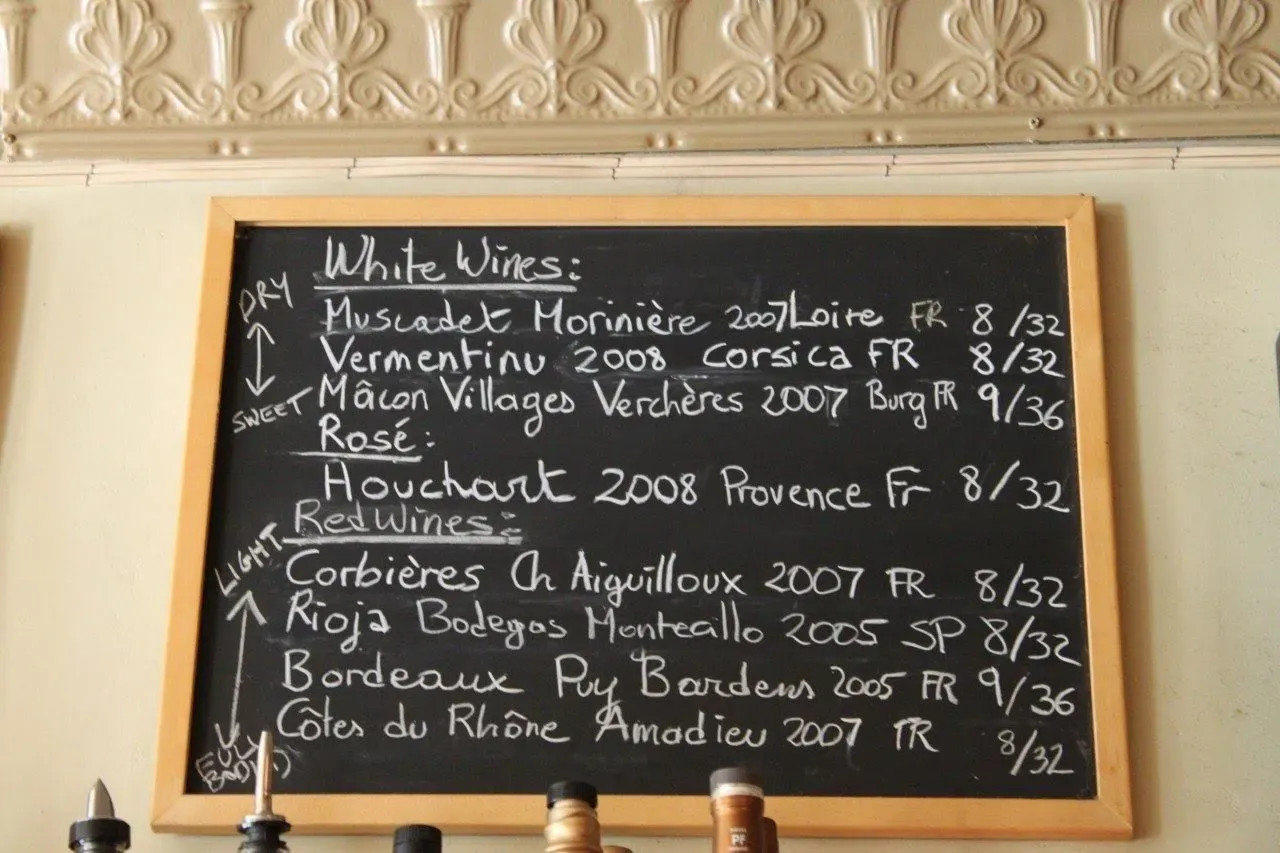 White Wines:
DRY
Muscadet Morinière 2007 Loire FR 8/32
Vermentinu 2008 Corsica FR 8/32
SWEET
Mâcon Villages Verchères 2007 Burg FR 9/36
Rosé:
Houchart 2008 Provence Fr 8/32
Red Wines:
LIGHT
Corbières Ch Aiguilloux 2007 FR 8/32
Rioja Bodegas Montecillo 2005 SP 8/32
Bordeaux Puy Bardens 2005 FR 9/36
Côtes du Rhône Amadieu 2007 FR 8/32
FULL
PF